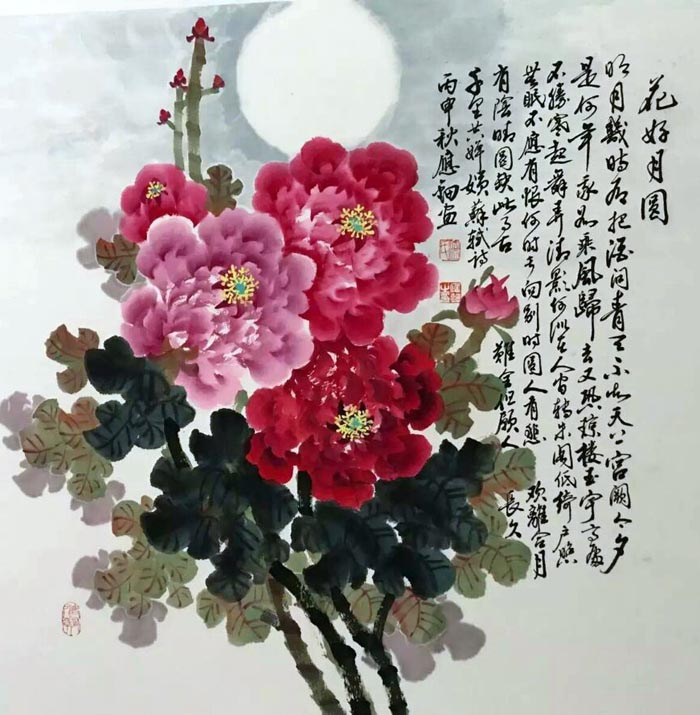 花好月圆
明月幾時有把酒问青天不知天上宫阙今夕
是何年我欲乘風歸去又恐琼楼玉宇高處
不勝寒起舞弄清影何似在人间转朱阁低绮户照
無眠不應有恨何时长向别時圆人有悲
欢離合月
有陰晴圆缺此事古
難全但願人
長久
千里共婵娟 蘇軾诗
丙申秋應画